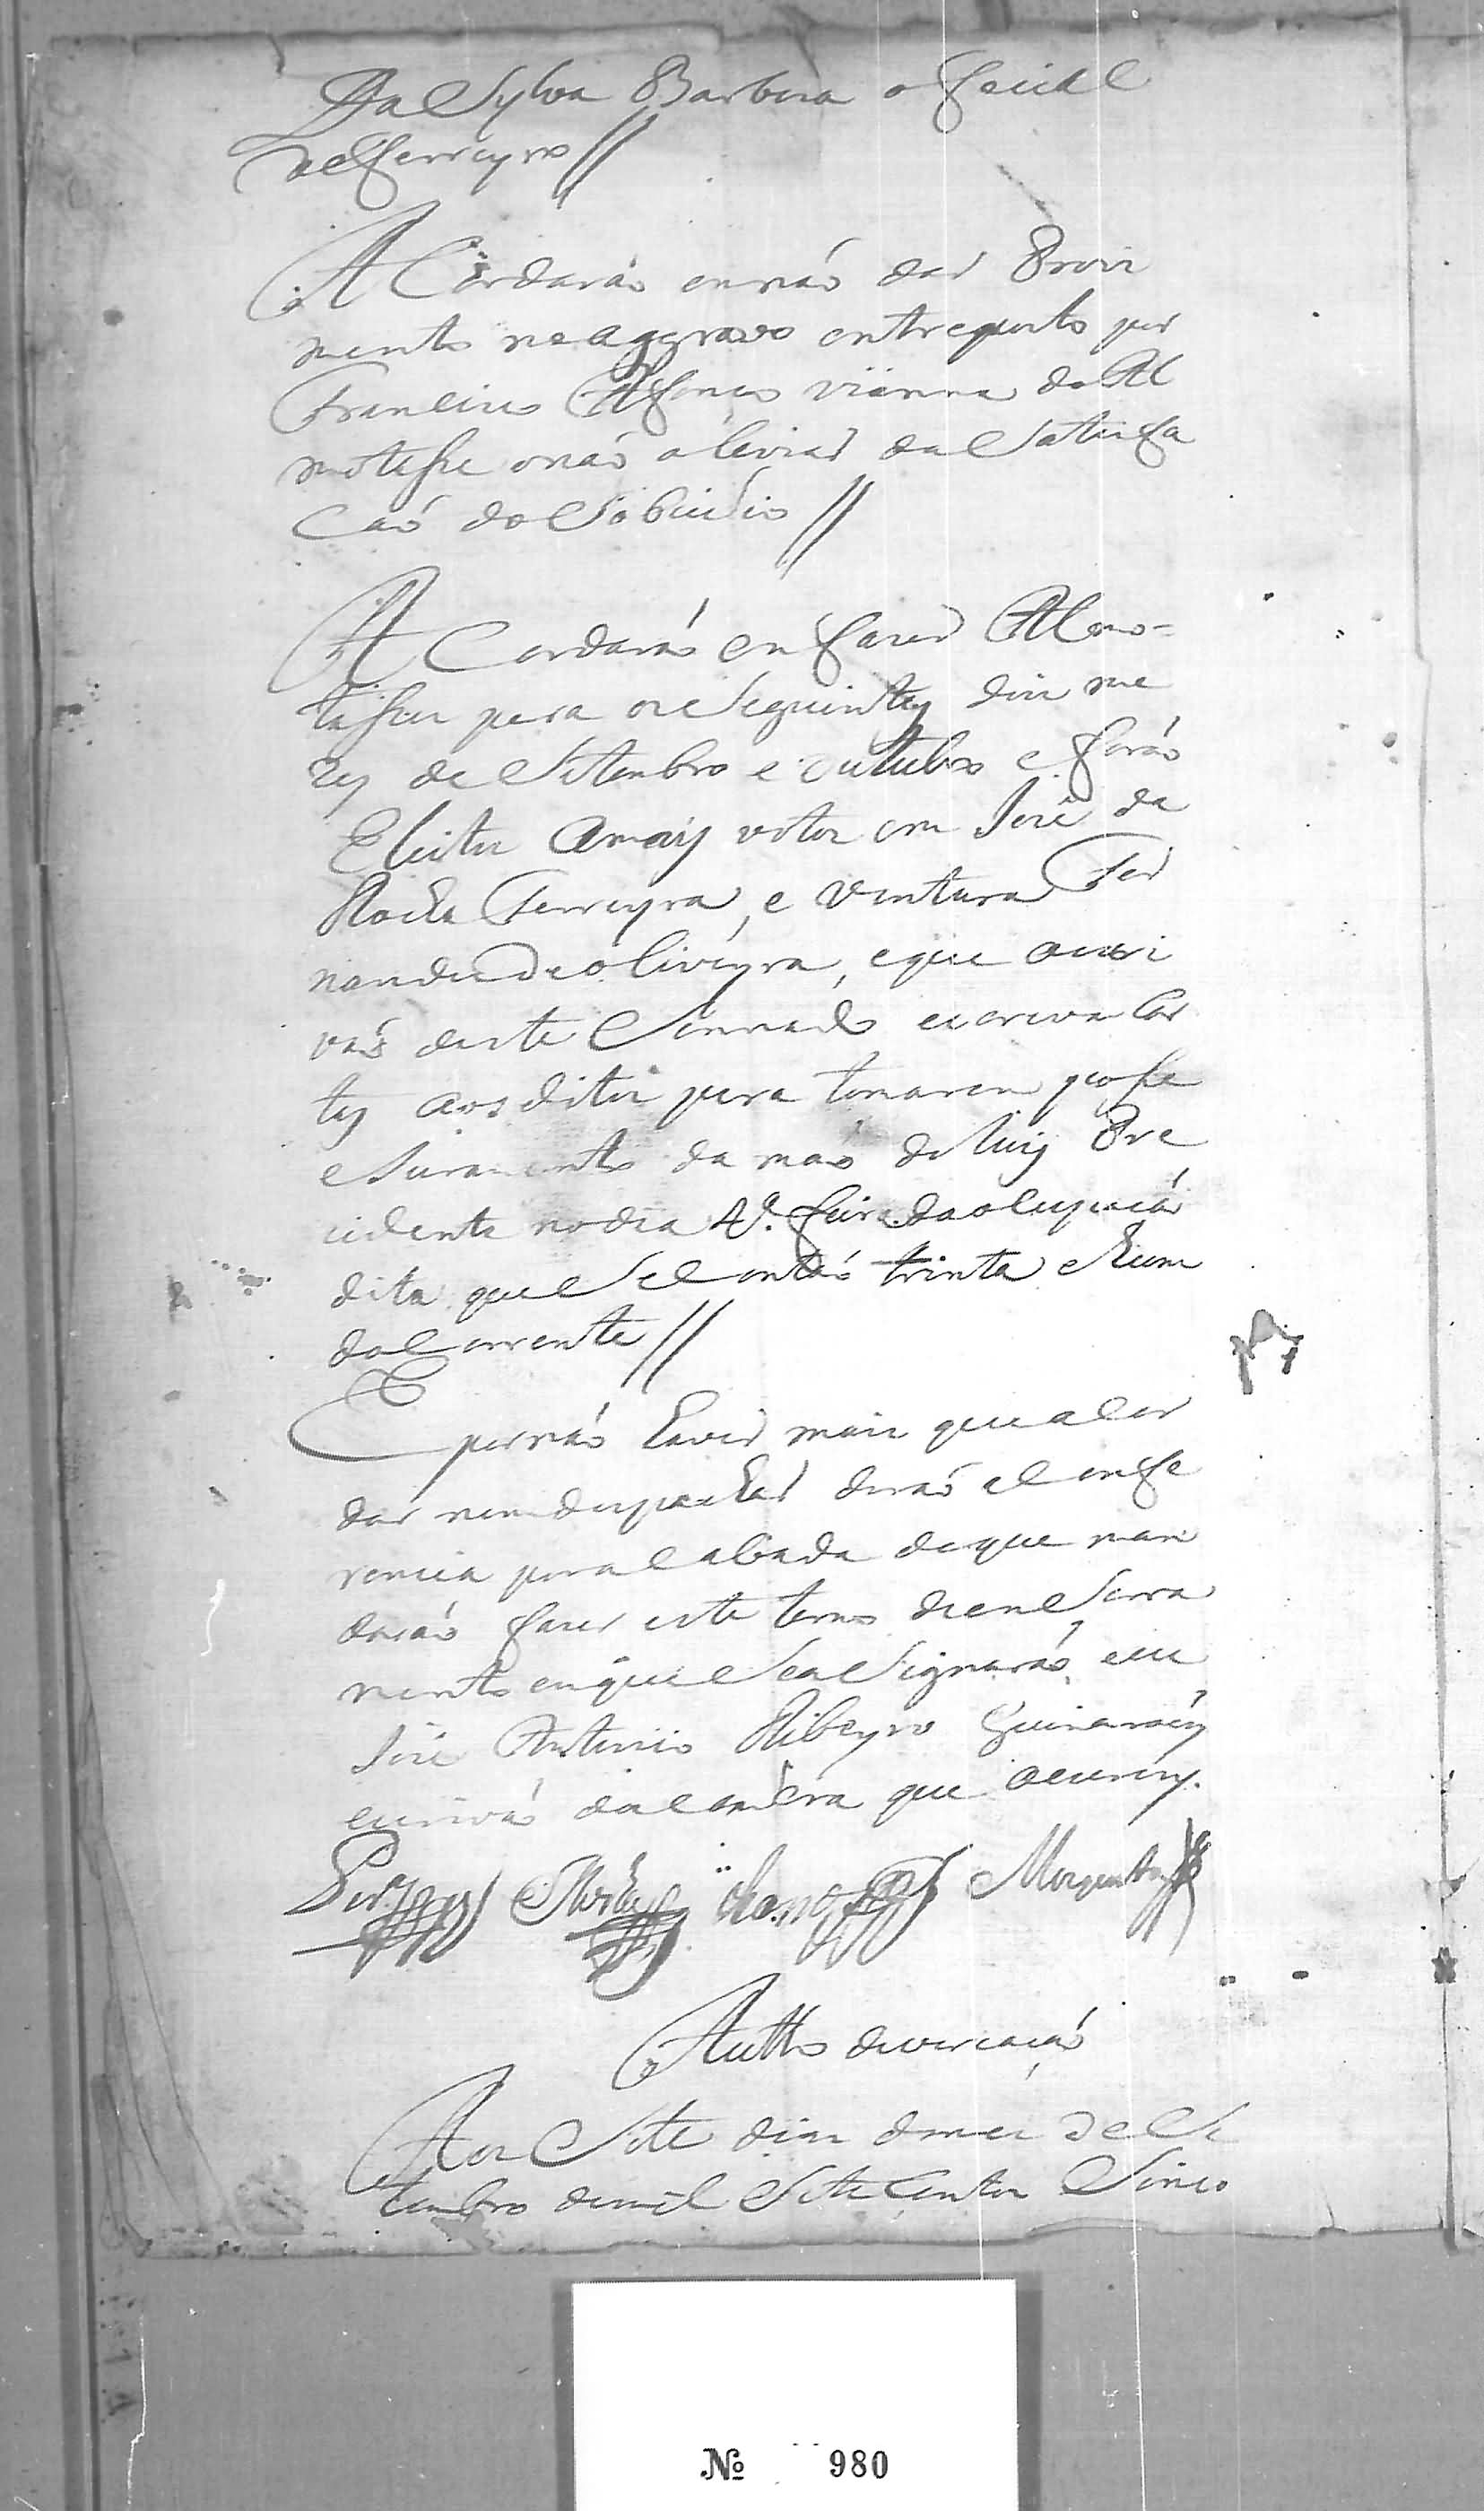 da Sylva Barboza official
de Ferreyro //
A Cordarão en não dar Provi
mento no aggravo entreposto por
Francisco Affonço vianna do Al
motasse o não aliviar da Satisfa
Caó do Sobcidio //
A Cordarão en fazer Almo=
tasseis para os Seguintes dois me
zes de Setembro e outubro e forão
Eleitos a mais votos em José da
Rocha Ferreyra, e Ventura Fer
nandes de oliveyra, e que o escri
vaó deste Sennado escreva Car
tas aos ditos para tomarem posse
e Juramento da mão do Juiz Pre
cidente no dia 4ª. feira da
dita que Se contão trinta e hum
do Corrente //
E por não haver mais que acor
dar nem despachar derão a Confe
rencia por acabada de que man
darão fazer este termo de enSerra
mento em que Se aSignarão, e eu
José Antonio Ribeyro Guimaraes
escrivaó da camera que o escrevy.
Autto de vereação
Aos Sete dias do mes de Se
tembro de mil Sete Centos Sinco
№ 980